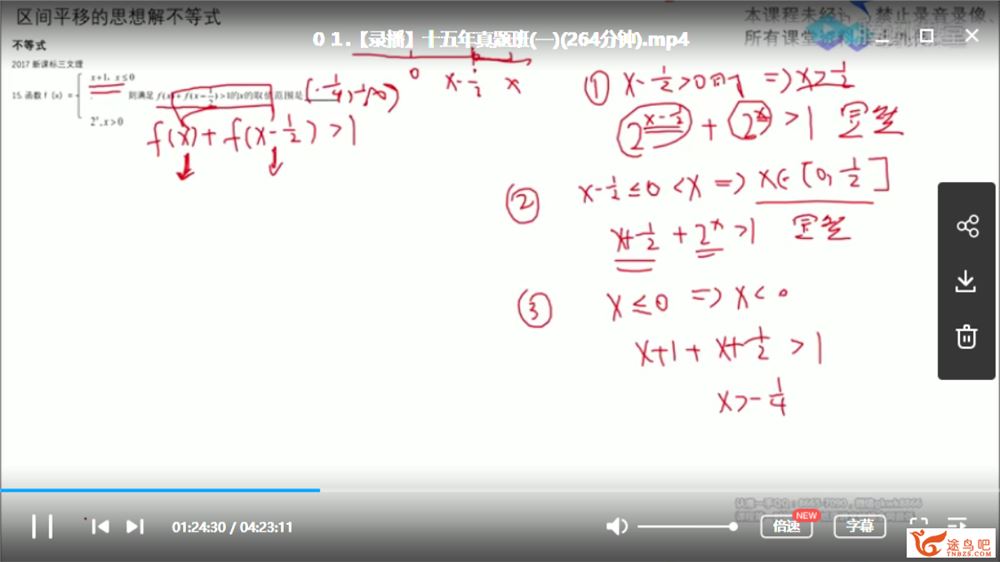 区间平移的思想解不等式
本课程未经 禁止录音录像、
所有课堂
0 1.【录播】十五年真题班(一)(264分钟).mp4
不等式
2017 新课标三文理
15. 函数 f (x) = { x+1, x≤0
2ˣ, x>0
则满足 f(x) + f(x-1/2) >1的x的取值范围是 (-1/4, +∞)
0 x-1/2 x
f(x) + f(x-1/2) >1
① x-1/2>0时 ⇒ x>1/2
2^(x-1/2) + 2^x >1 显然
② x-1/2≤0<x ⇒ x∈[0, 1/2]
x+1/2 + 2^x >1 显然
③ x≤0 ⇒ x<0
x+1 + x+1/2 >1
x>-1/4
01:24:30 / 04:23:11
倍速
NEW
字幕
途鸟吧
TNBZS.COM